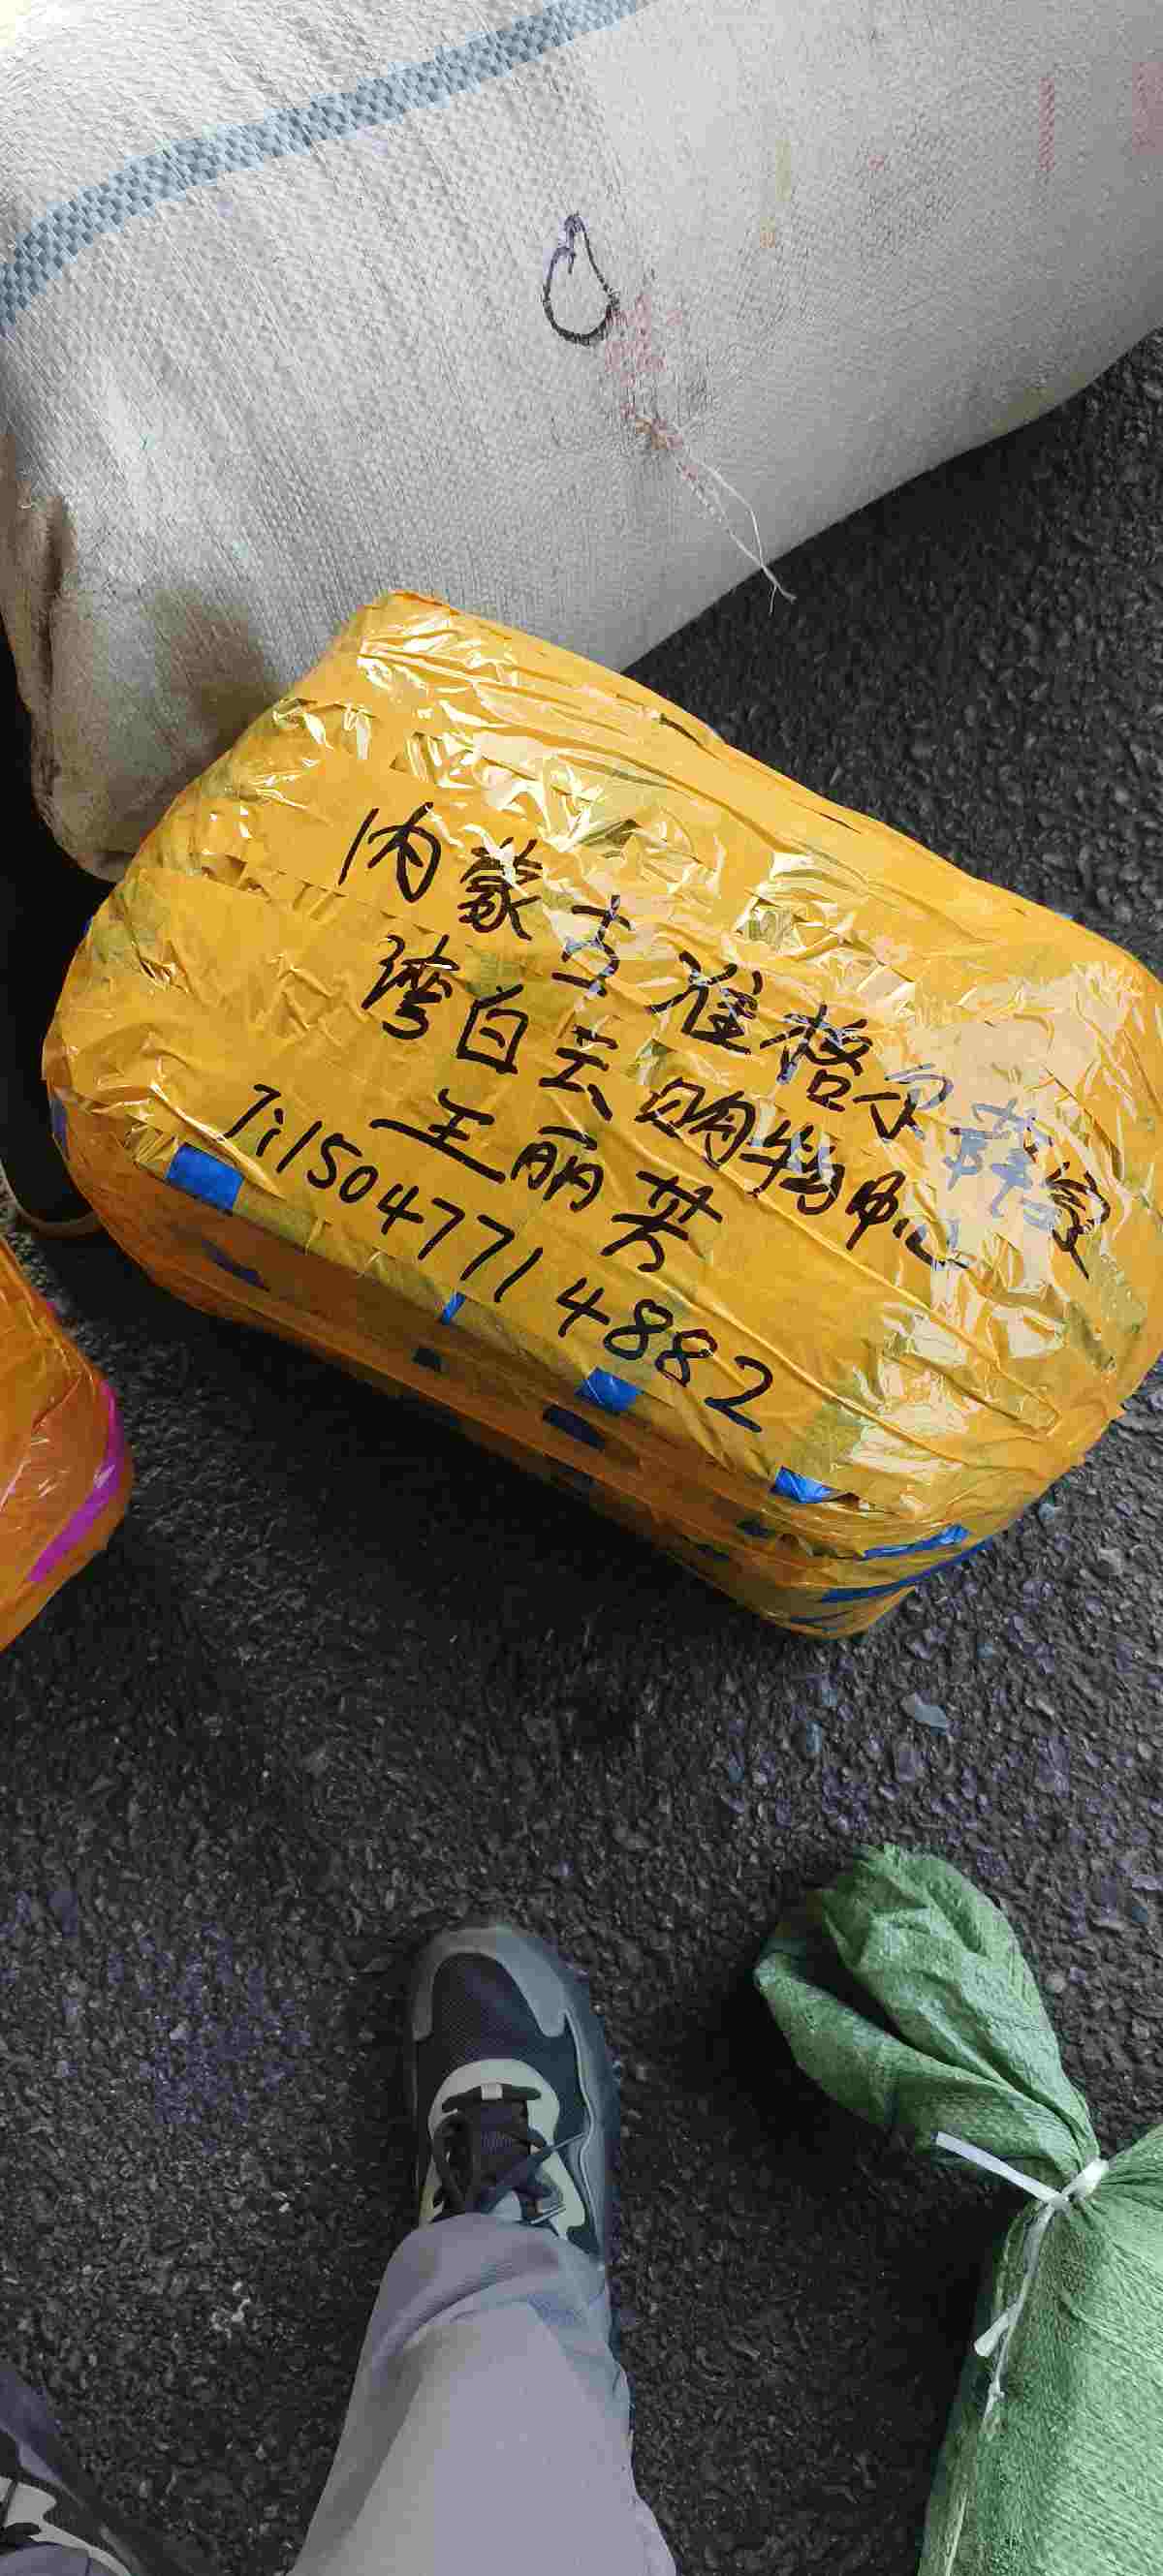 内蒙古准格尔薛家
湾白云购物中心
王丽芳
Ti15047714882